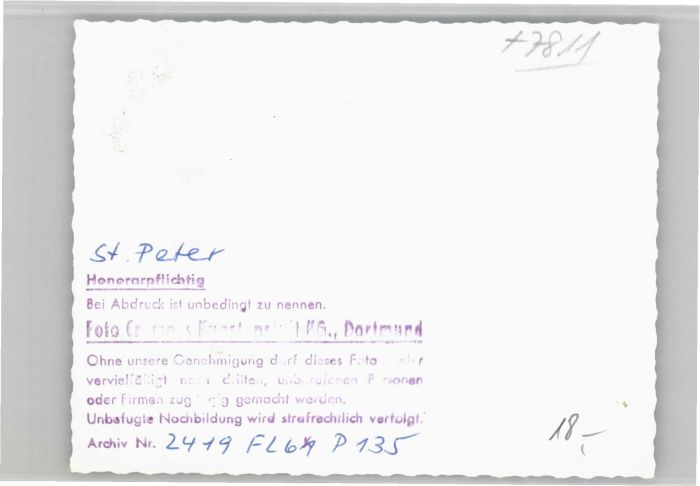 +7811
St. Peter
Honorarpflichtig
Bei Abdruck ist unbedingt zu nennen.
Foto KG., Dortmund
Ohne unsere Genehmigung darf dieses Foto
vervielfältigt noch dritten, unberufenen Personen
oder Firmen zugängig gemacht werden.
Unbefugte Nachbildung wird strafrechtlich verfolgt.
Archiv Nr. 2419 P 135
18,-